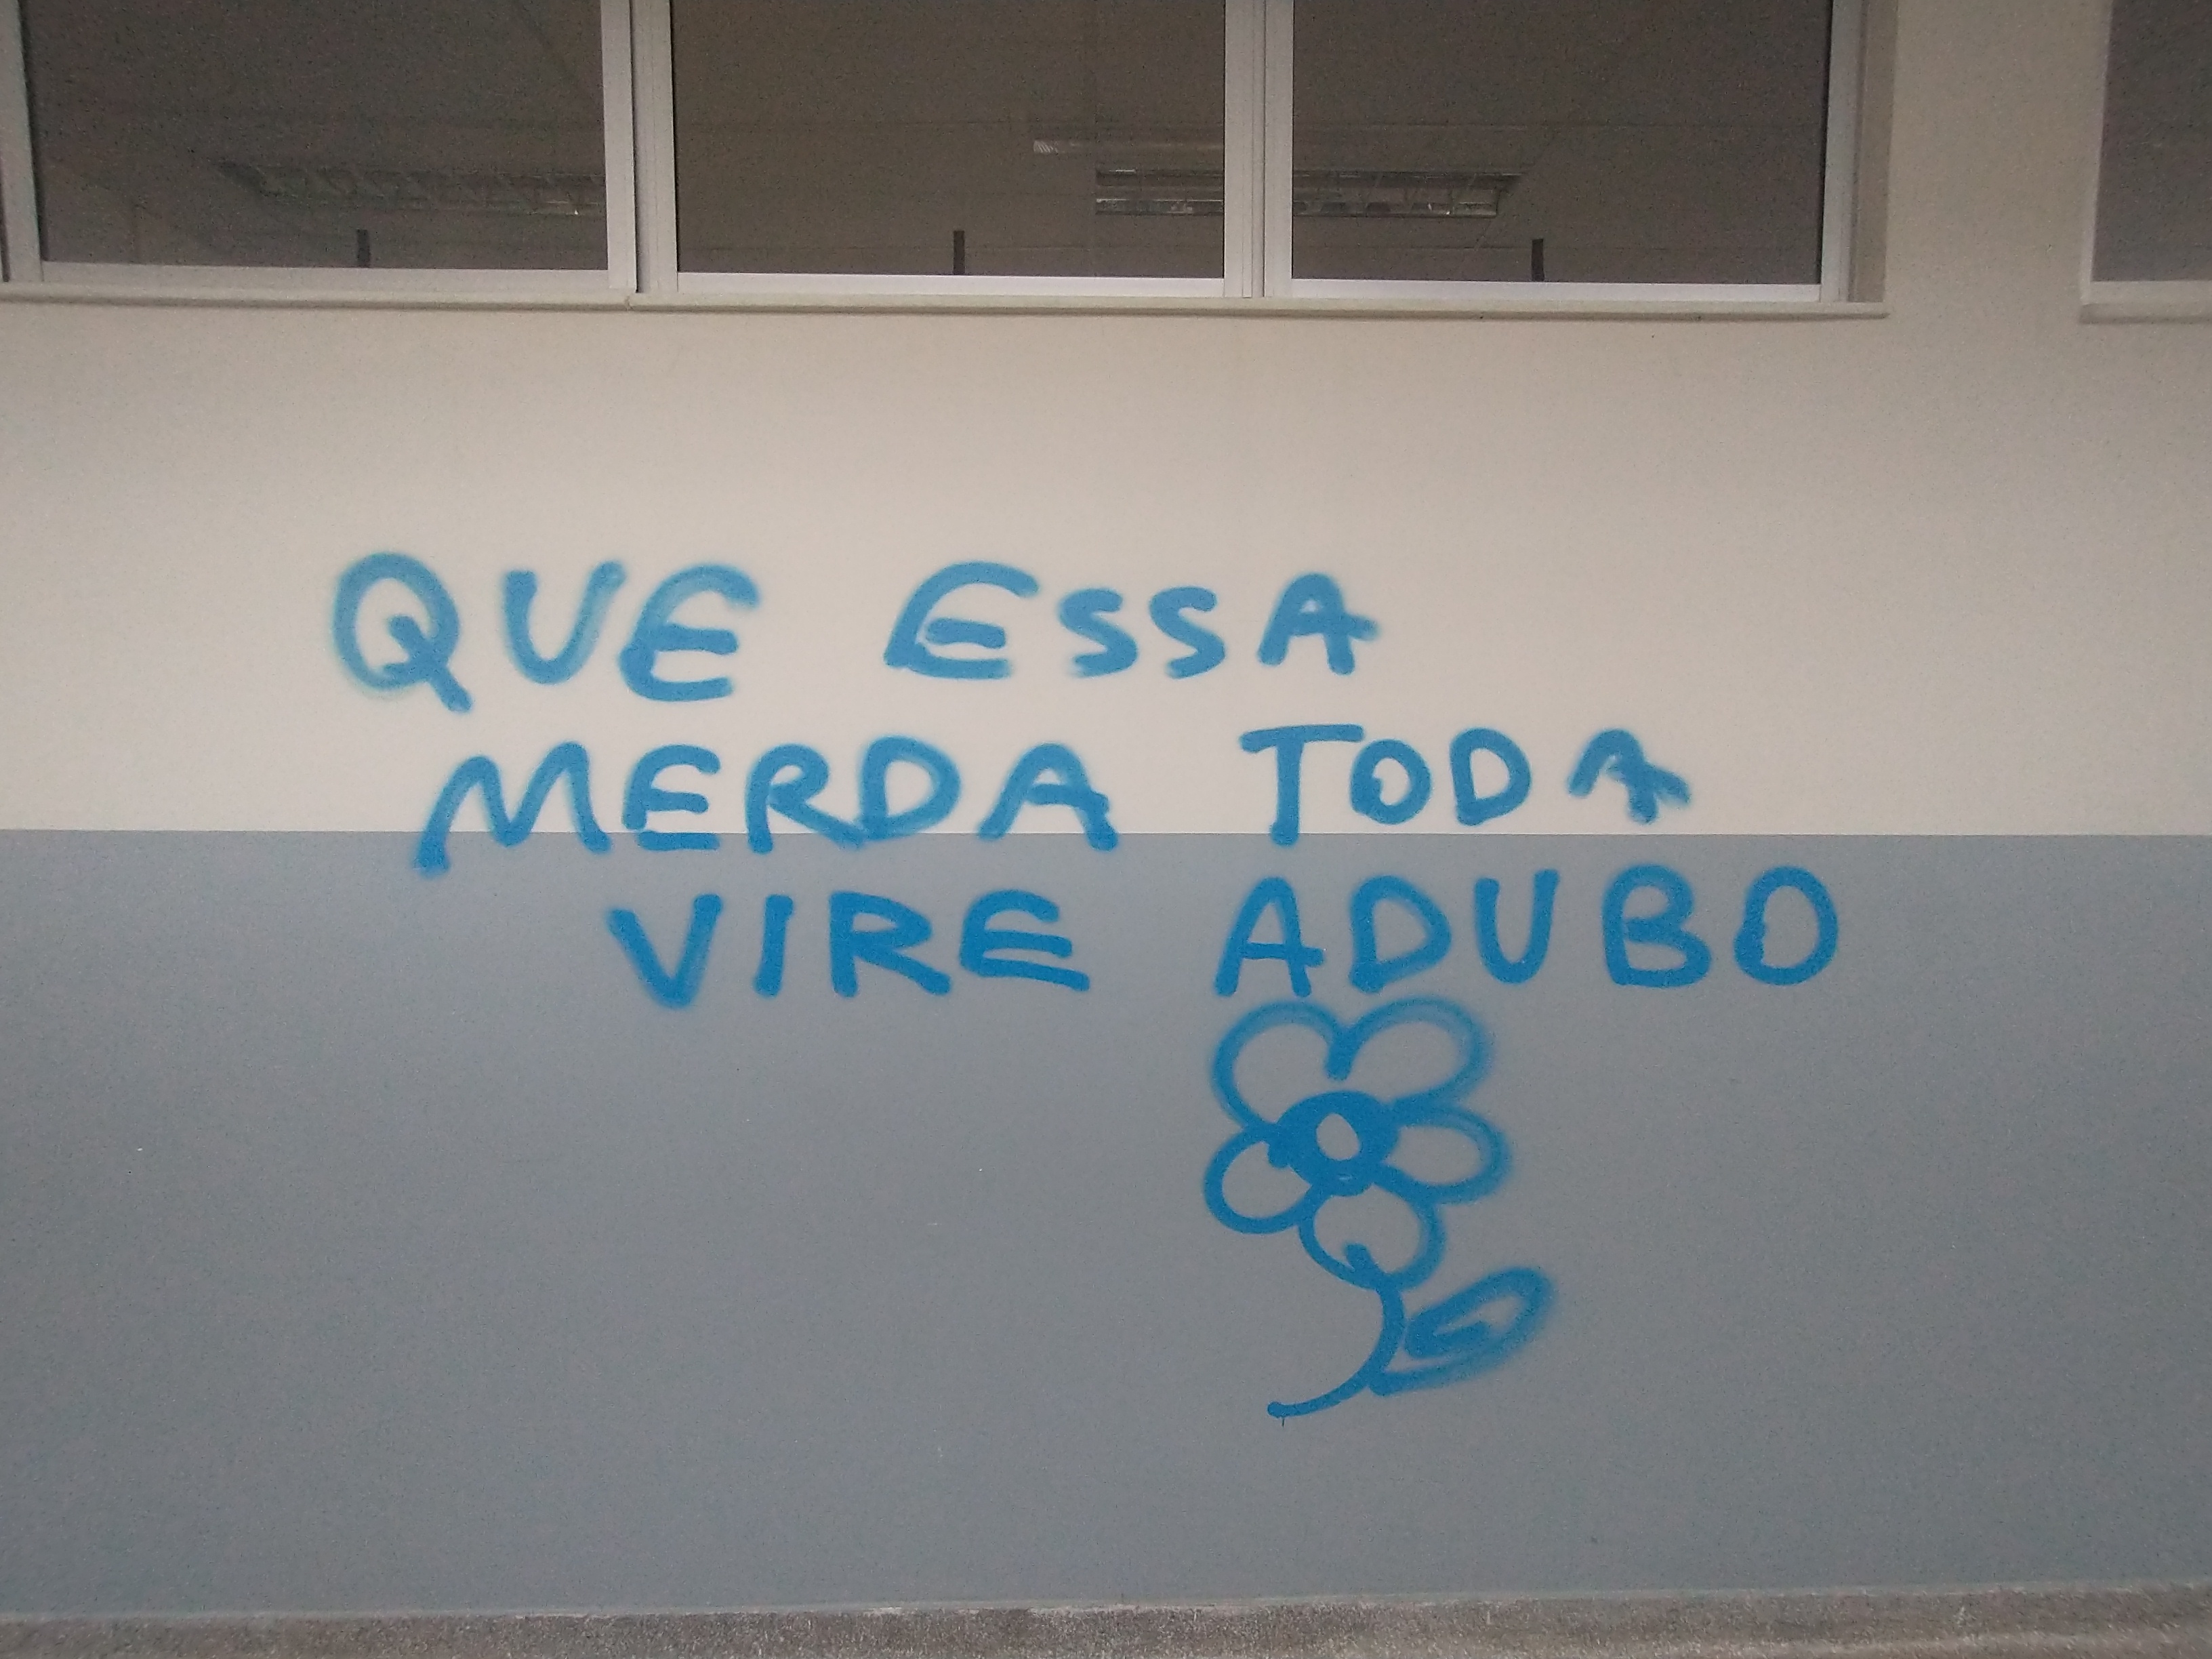 QUE ESSA
MERDA TODA
VIRE ADUBO